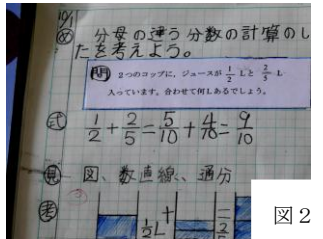 10/1
め 分母の違う分数の計算のし
たを考えよう。
問 2つのコップに、ジュースが 1/2 Lと 2/5 L
入っています。合わせて何Lあるでしょう。
式 1/2 + 2/5 = 5/10 + 4/10 = 9/10
見 図、数直線、通分
考 1/2L + 2/5
図2